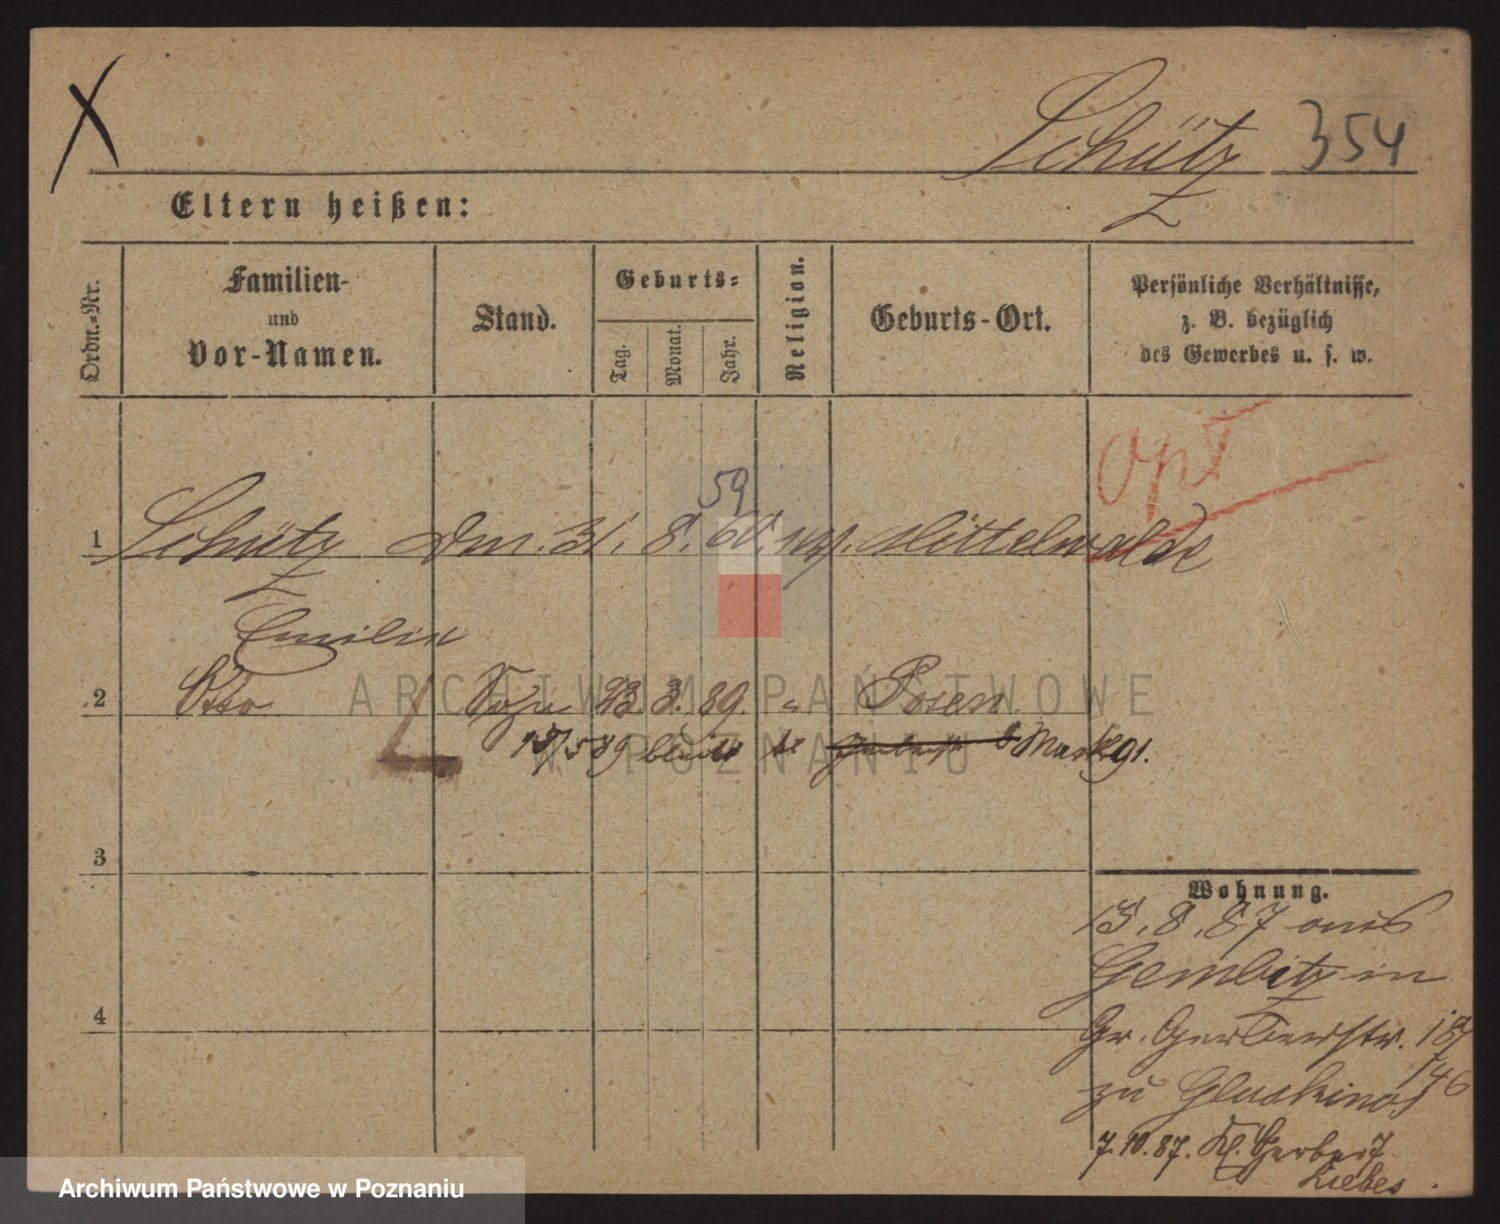 X
Schütz 354
Eltern heißen:
Ordn.-Nr.
Familien-
und
Vor-Namen.
Stand.
Geburts-
Tag.
Monat.
Jahr.
Religion.
Geburts-Ort.
Persönliche Verhältnisse,
z. B. bezüglich
des Gewerbes u. s. w.
Opt
59
1 Schütz 31. 8. 60. Mittelwalde
Emilie
2 Otto 23. 3. 89. " Posen
ARCHIWUM PAŃSTWOWE
W POZNANIU
15/5 89 91.
3
Wohnung.
13. 8. 87 aus
Gembitz in
4
Gr. Gerberstr.
zu
7. 10. 87. Kl. Gerberst 7
Liebes
Archiwum Państwowe w Poznaniu